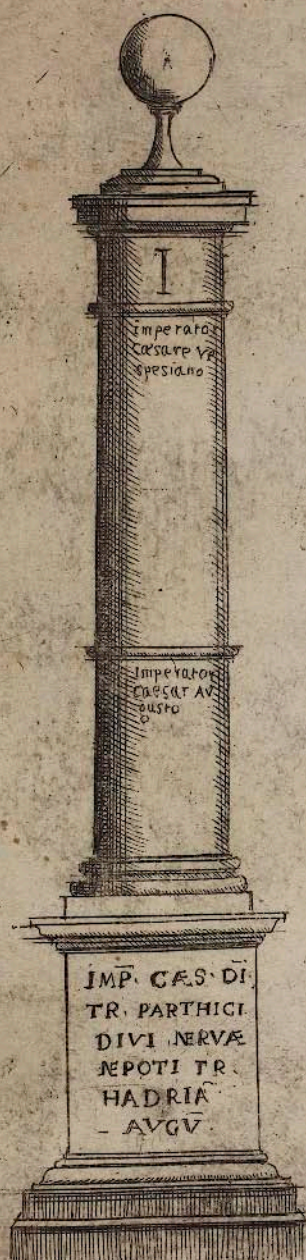 A
I
imperator
Cæsare Ve
spesiano
Imperator
Caesar AV
gusto
IMP. CÆS. DI
TR. PARTHICI
DIVI NERVÆ
NEPOTI TR.
HADRIA
AVGV